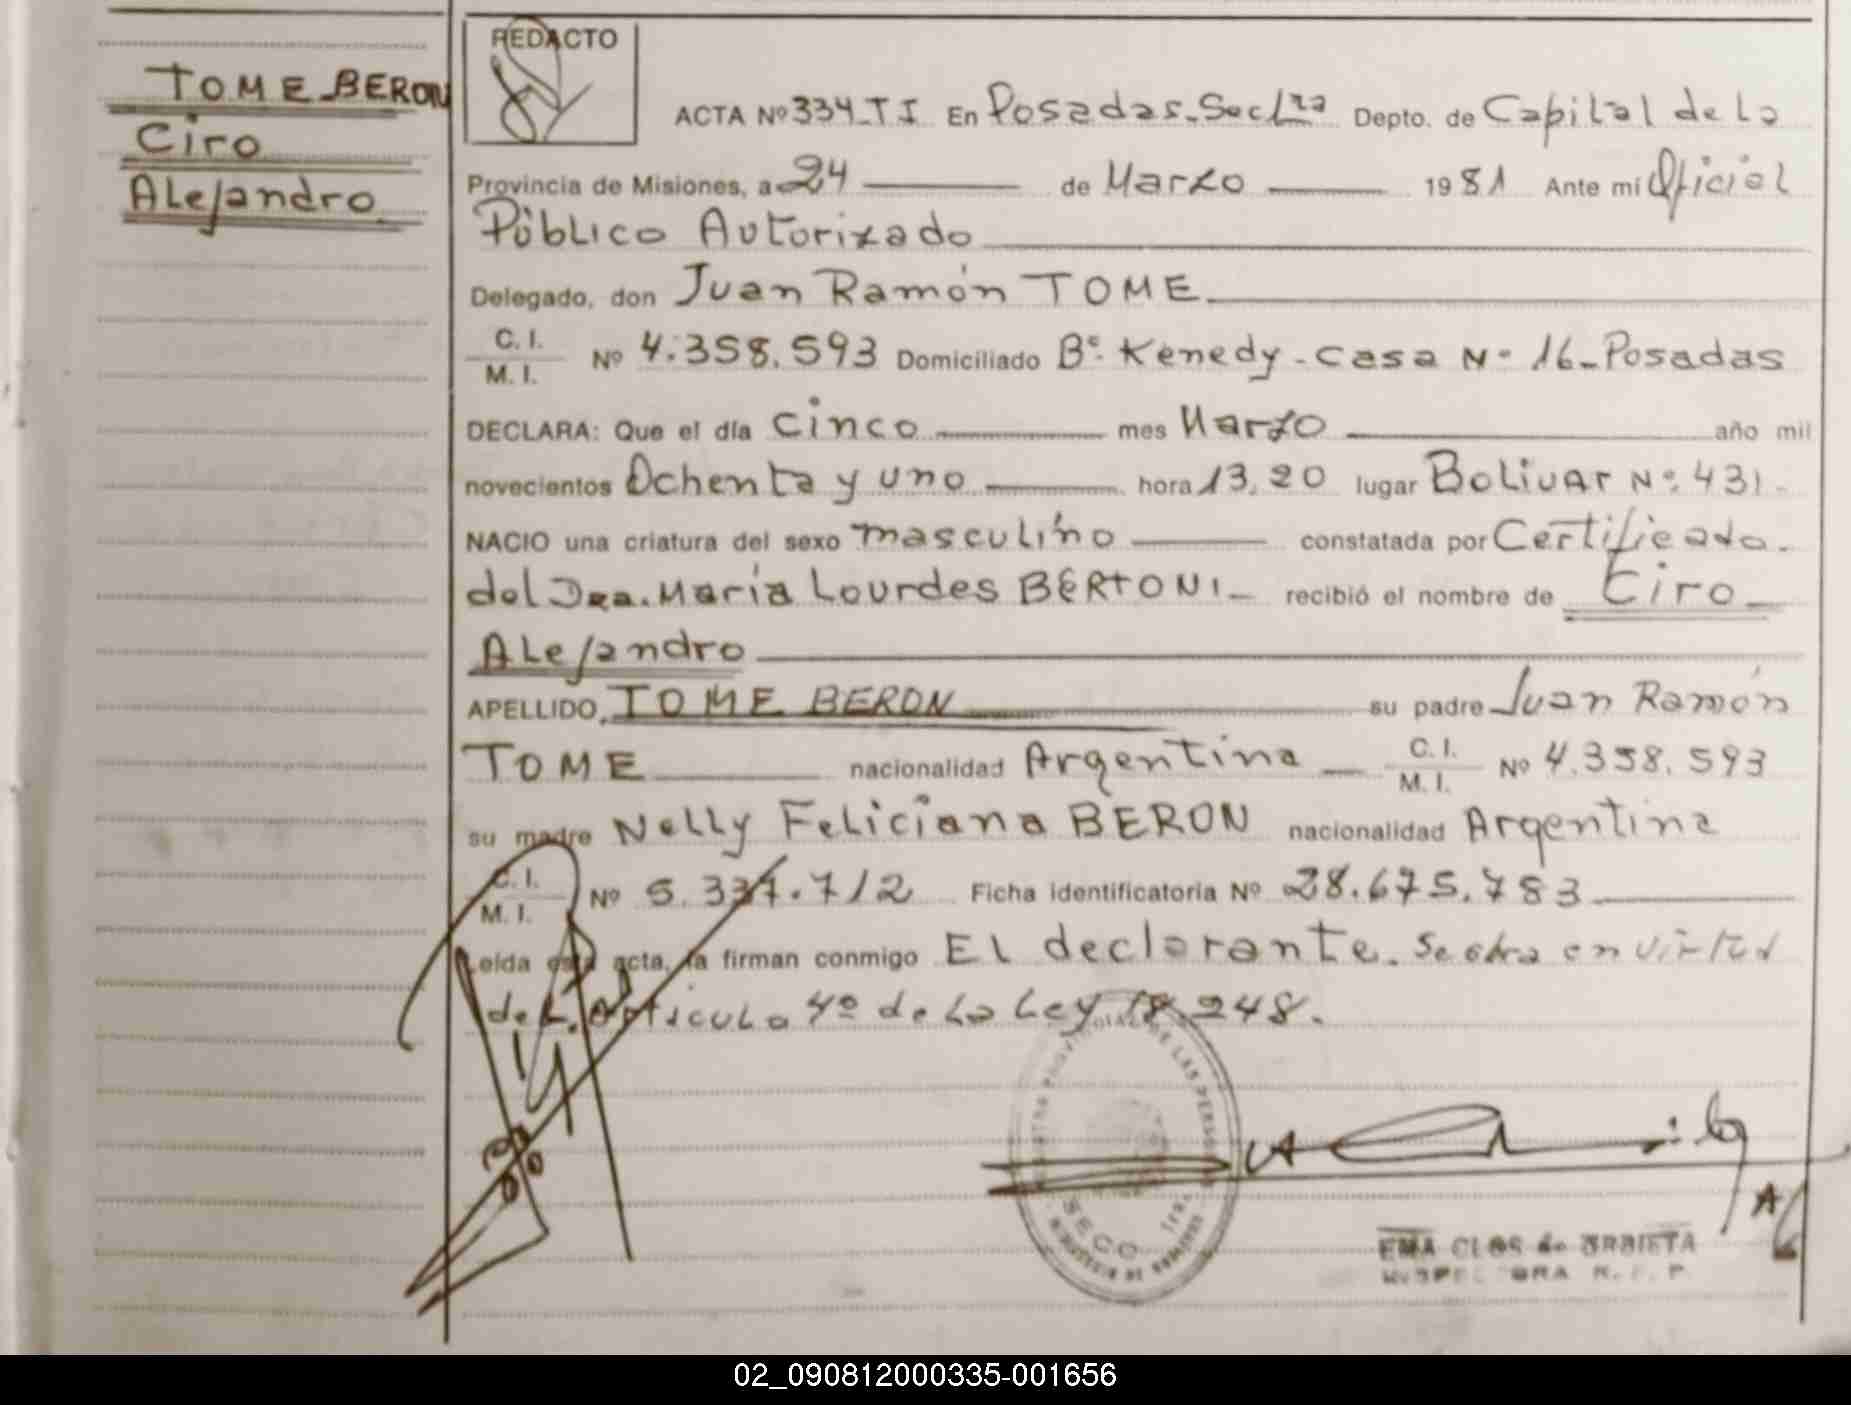 TOME BERON
Ciro
Alejandro
REDACTO
ACTA Nº 334_T I En Posadas_Secc 1ra Depto. de Capital de La
Provincia de Misiones, a 24 de Marzo 1981 Ante mí Oficial
Público Autorizado
Delegado, don Juan Ramón TOME
C. I.
M. I. Nº 4.358.593 Domiciliado Bº. Kenedy - Casa Nº 16_Posadas
DECLARA: Que el día cinco mes Marzo año mil
novecientos Ochenta y uno hora 13,20 lugar BoLivar Nº. 431-
NACIO una criatura del sexo masculino constatada por Certificado
del Dra. María Lourdes BERTONI_ recibió el nombre de Ciro_
ALejandro
APELLIDO, TOME BERON su padre Juan Ramón
TOME nacionalidad Argentina C. I.
M. I. Nº 4.358.593
su madre Nelly Feliciana BERON nacionalidad Argentina
C. I.
M. I. Nº 5.337.712 Ficha identificatoria Nº 28.675.783
Leída esta acta, la firman conmigo El declarante. Se obra en virtud
del Articulo 4º de La Ley 18.248.
LAS PERSONAS
SECC 1ra.
MINISTERIO DE GOBIERNO
EMA CLOS de URBIETA
INSPECTORA R. P. P.
02_090812000335-001656